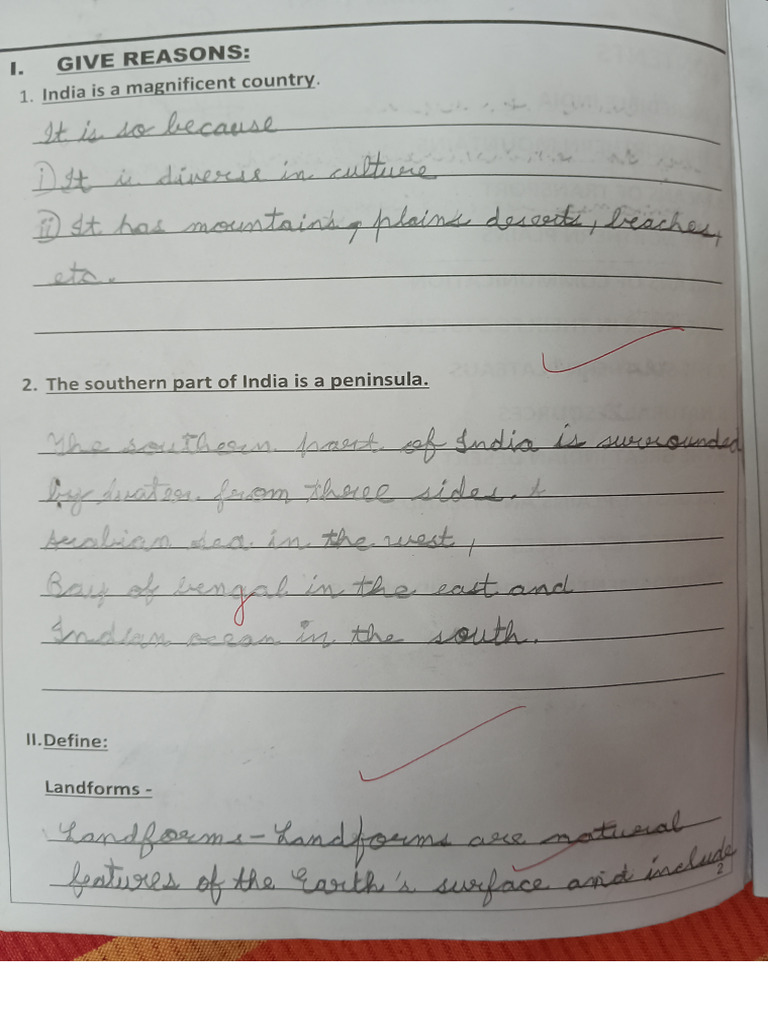 I. GIVE REASONS:
1. India is a magnificent country.
It is so because
i) It is diverse in culture
ii) It has mountains, plains deserts, beaches,
etc.
2. The southern part of India is a peninsula.
The southern part of India is surrounded
by water from three sides.
Arabian sea in the west,
Bay of bengal in the east and
Indian ocean in the south.
II. Define:
Landforms -
Landforms - Landforms are natural
features of the Earth's surface and include
2